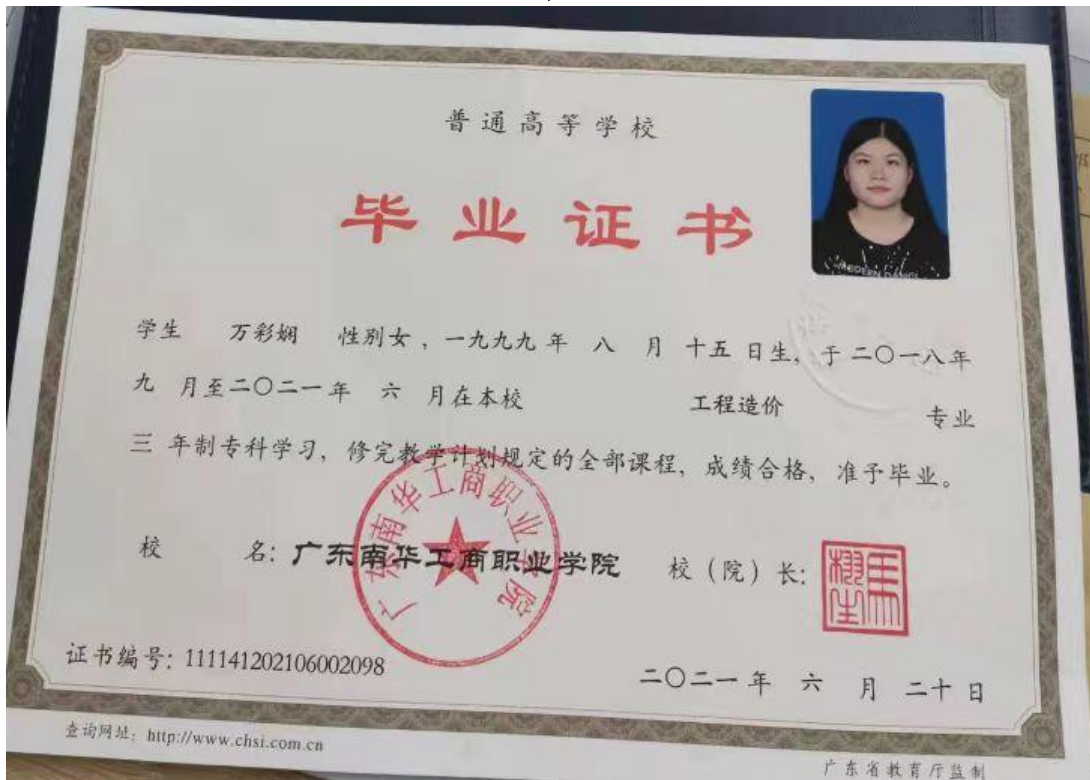 普通高等学校
毕业证书
学生 万彩娴 性别女，一九九九年 八 月 十五 日生，于二〇一八年
九 月至二〇二一年 六 月在本校 工程造价 专业
三 年制专科学习，修完教学计划规定的全部课程，成绩合格，准予毕业。
校 名：广东南华工商职业学院 校（院）长：
广东南华工商职业学院
证书编号：111141202106002098
二〇二一年 六 月 二十日
查询网址：http://www.chsi.com.cn
广东省教育厅监制